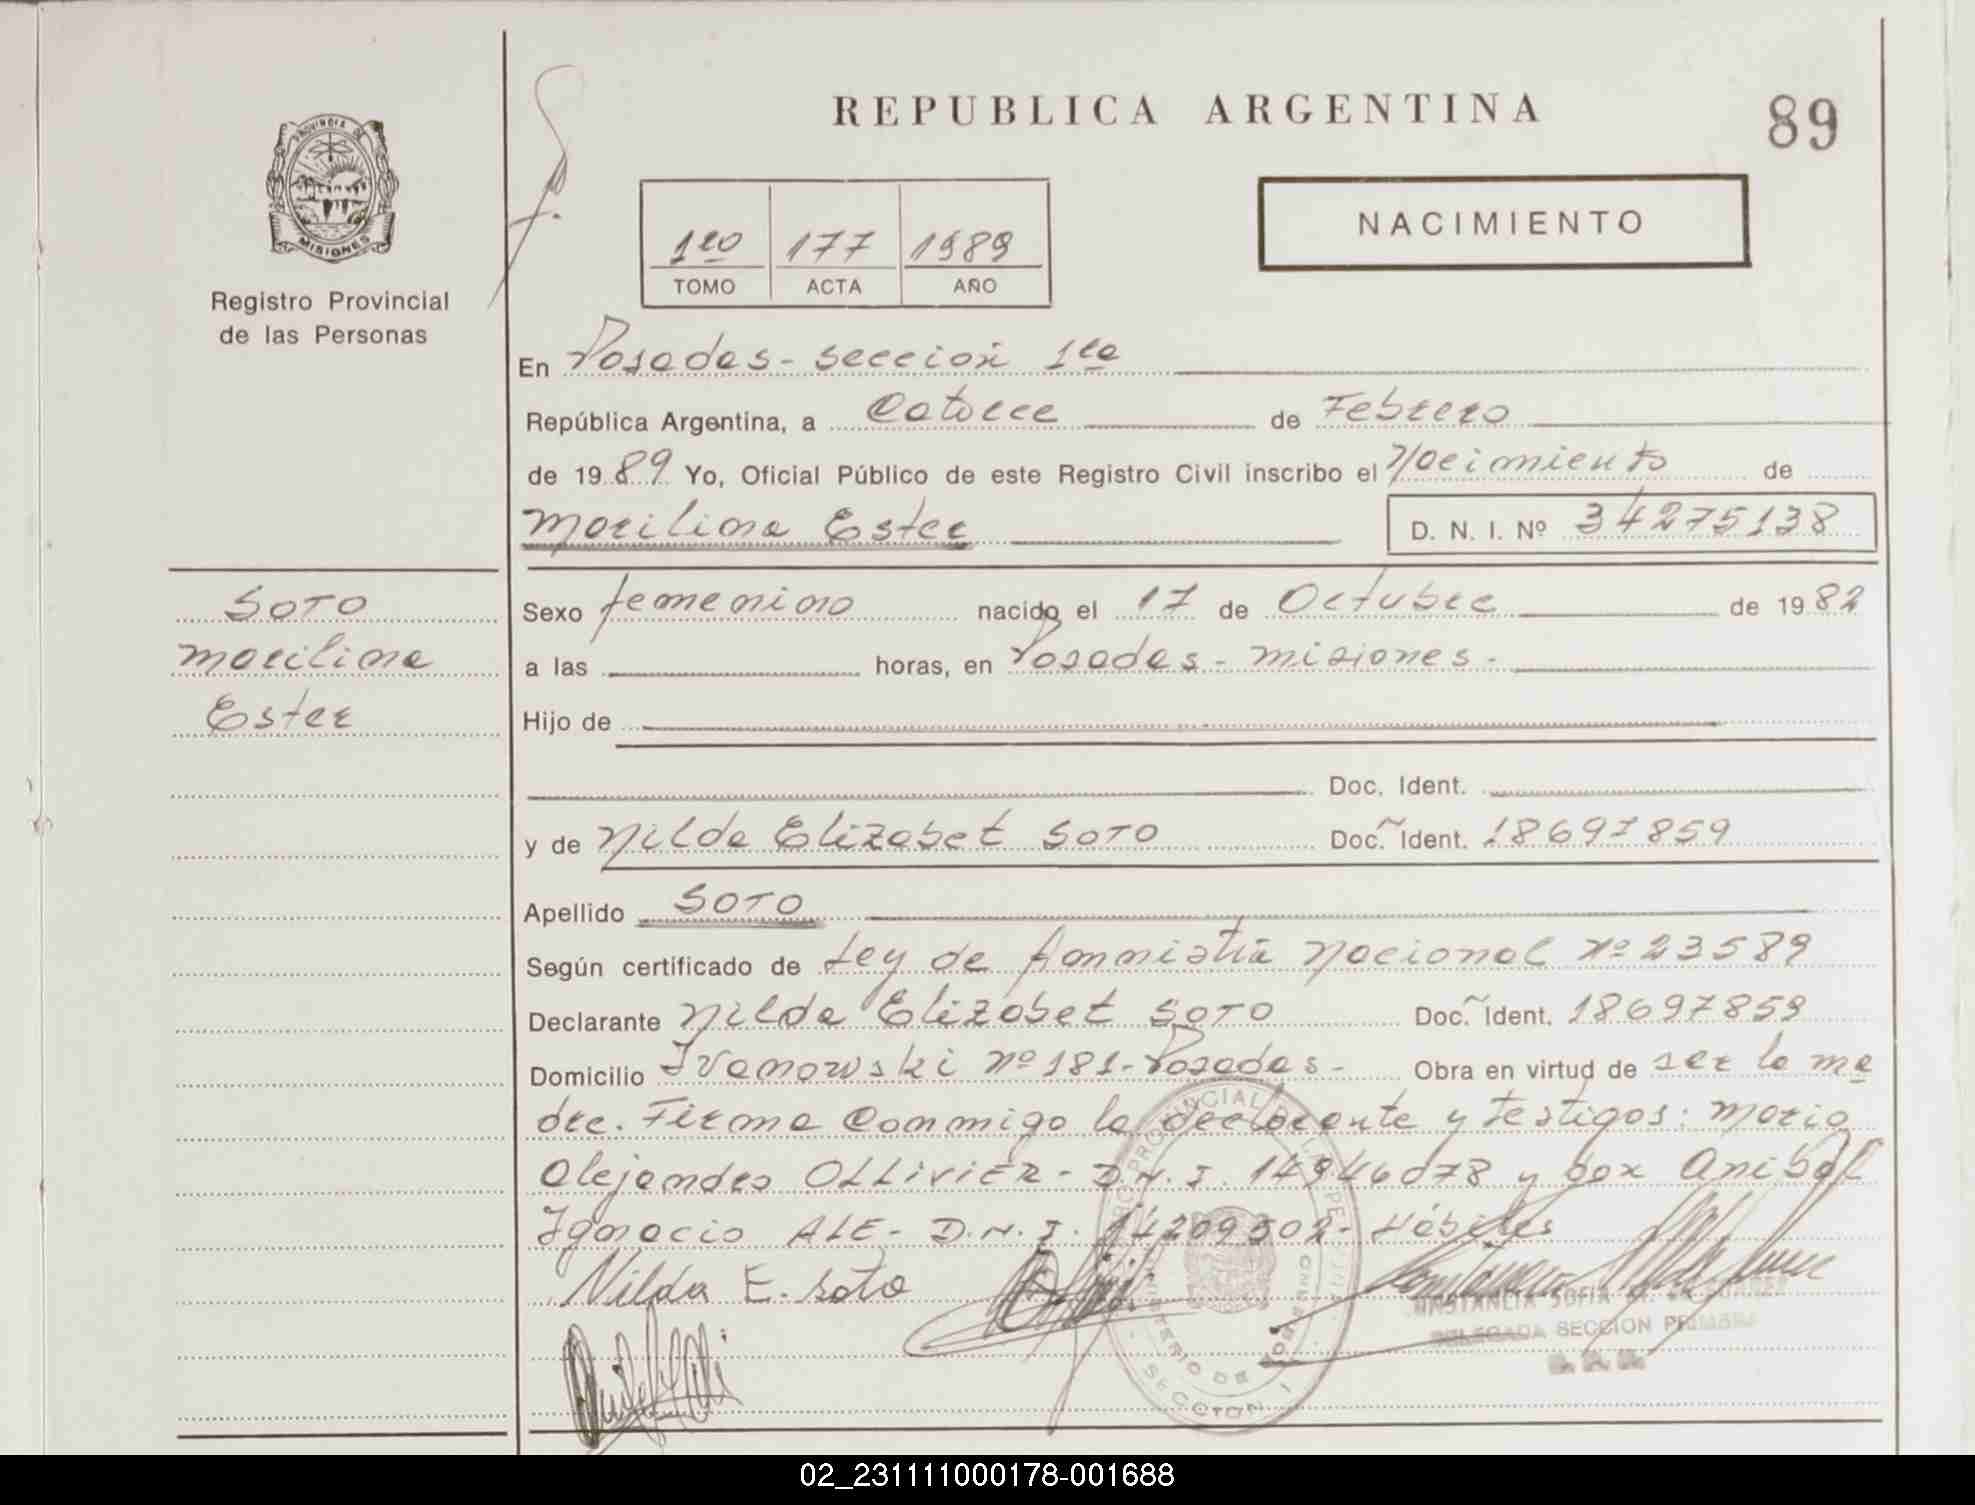 REPUBLICA ARGENTINA
89
PROVINCIA DE
MISIONES
Registro Provincial
de las Personas
NACIMIENTO
1ro 177 1989
TOMO ACTA AÑO
En Posadas - Sección 1ra
República Argentina, a Catorce de Febrero
de 1989 Yo, Oficial Público de este Registro Civil inscribo el Nacimiento de
Marilina Ester D. N. I. Nº 34275138
SOTO
Marilina
Ester
Sexo femenino nacido el 17 de Octubre de 1982
a las horas, en Posadas - Misiones -
Hijo de
Doc. Ident.
y de Nilda Elizabet SOTO Doc. Ident. 18697859
Apellido SOTO
Según certificado de Ley de Amnistía Nacional Nº 23589
Declarante Nilda Elizabet SOTO Doc. Ident. 18697859
Domicilio Ivanowski Nº 181 - Posadas - Obra en virtud de ser la ma
dre. Firma conmigo la declarante y testigos: Mario
Alejandro OLLIVIER - D.N.I. 14946078 y don Anibal
Ignacio ALE - D.N.I. 14209502 - Hábiles
Nilda E. Soto
DELEGADA SECCION PRIMERA
SECCION 1
02_231111000178-001688